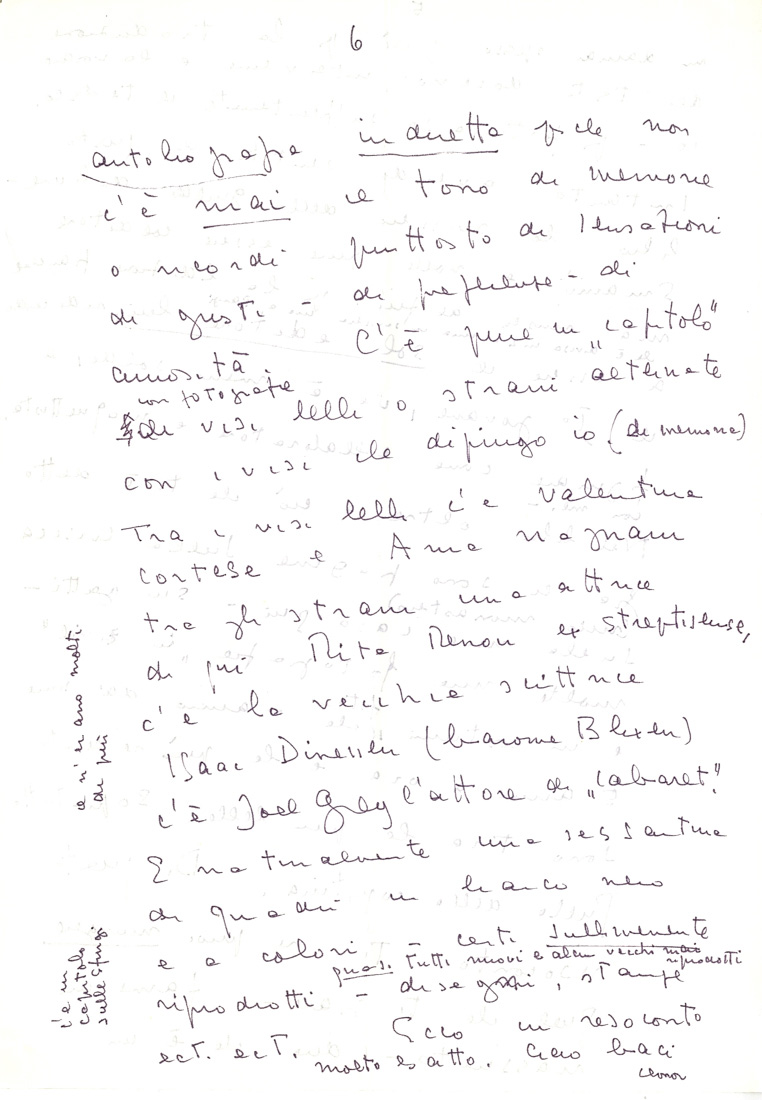 6
autobiografia indiretta perché non
c'è mai il tono di memorie
o ricordi piuttosto di sensazioni
di gusti – di preferenze – di
curiosità. C'è pure un "capitolo"
con fotografie
di visi belli o strani alternate
con i visi che dipingo io (di memoria)
Tra i visi belli c'è Valentina
Cortese e Anna Magnani
tra gli strani una attrice
di qui Rita Renoir ex streptiseuse,
c'è la vecchia scrittrice
Isaac Dinesen (baronne Blixen)
c'è Joel Grey l'attore di "Cabaret".
E naturalmente una sessantina
di quadri in bianco nero
e a colori – certi sublimemente
quasi tutti nuovi e alcuni vecchi mai riprodotti
riprodotti – disegni, stampe
ect. ect. Ecco un resoconto
molto esatto. Ciao baci
Leonor
ce n'erano molti di più
c'è un
capitolo
sulle Sfingi